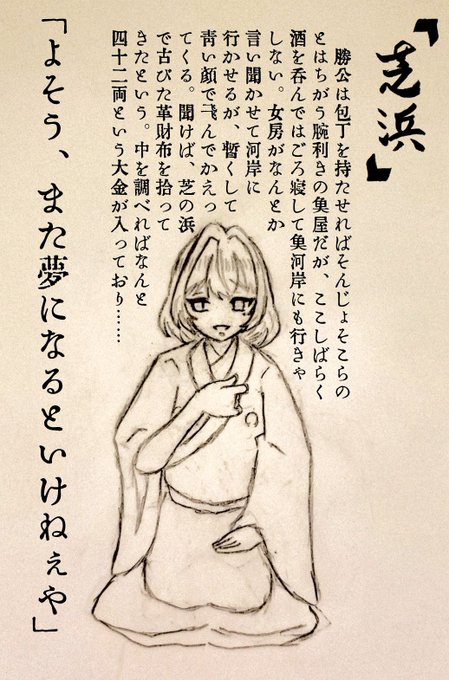 『芝浜』
勝公は包丁を持たせればそんじょそこらの
とはちがう腕利きの魚屋だが、ここしばらく
酒を呑んではごろ寝して魚河岸にも行きゃ
しない。女房がなんとか
言い聞かせて河岸に
行かせるが、暫くして
青い顔で飛んでかえっ
てくる。聞けば、芝の浜
で古びた革財布を拾って
きたという。中を調べればなんと
四十二両という大金が入っており……
「よそう、また夢になるといけねぇや」